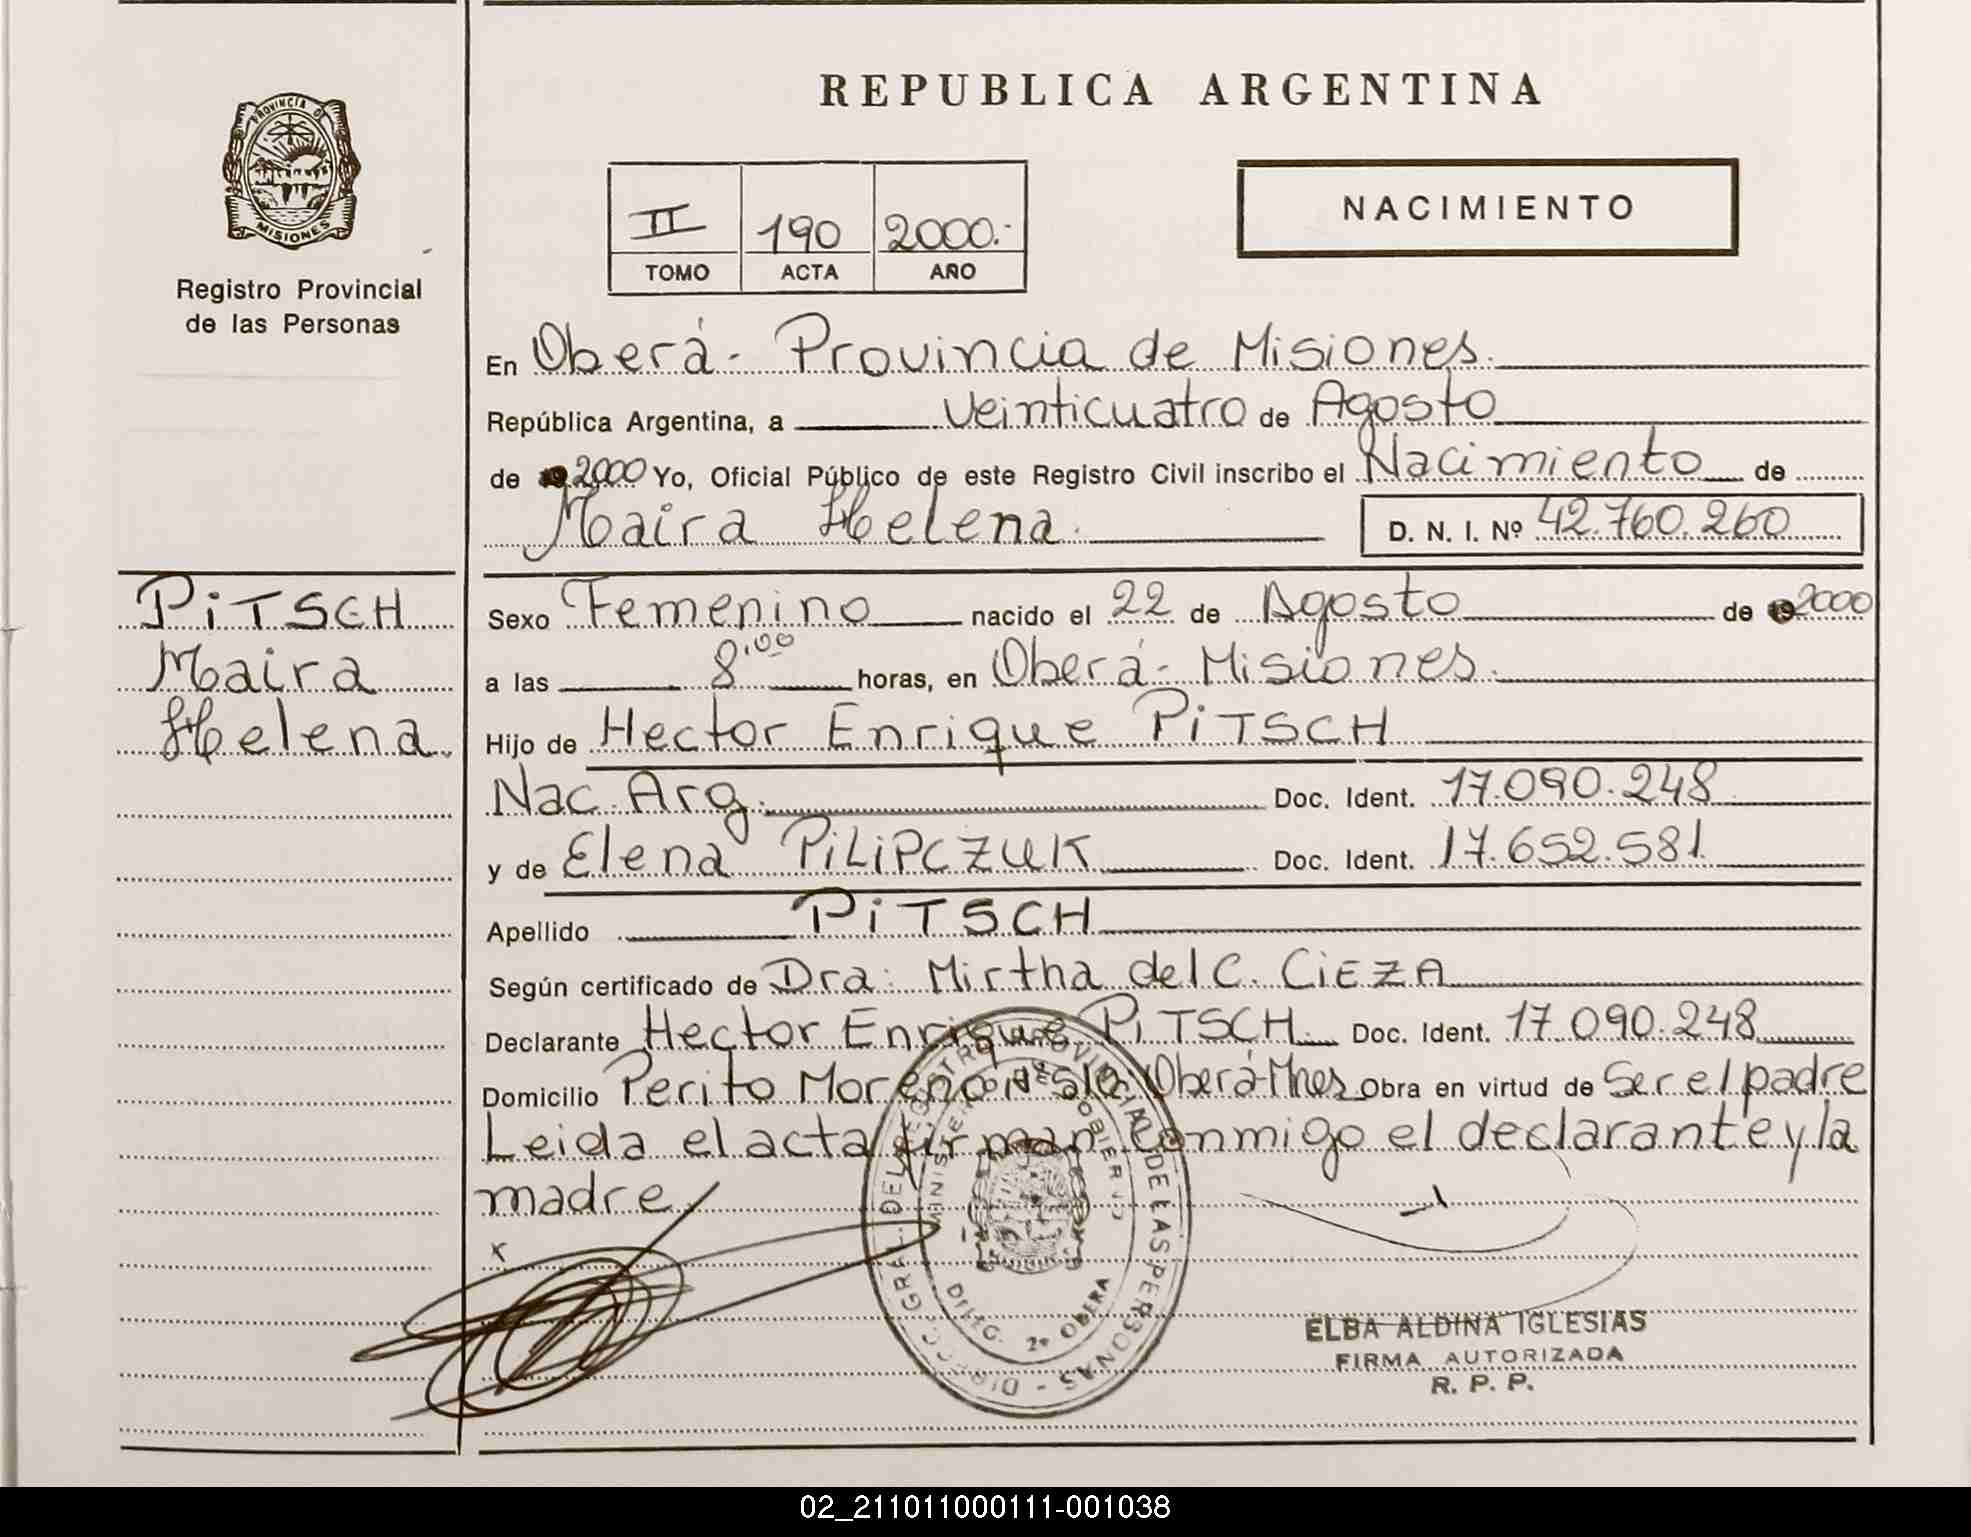 REPUBLICA ARGENTINA
PROVINCIA DE
MISIONES
Registro Provincial
de las Personas
II 190 2000.-
TOMO ACTA AÑO
NACIMIENTO
En Oberá - Provincia de Misiones.
República Argentina, a veinticuatro de Agosto
de 19 2000 Yo, Oficial Público de este Registro Civil inscribo el Nacimiento de
Maira Helena.
D. N. I. Nº 42.760.260
PiTSCH
Maira
Helena.
Sexo Femenino nacido el 22 de Agosto de 19 2000
a las 8,00 horas, en Oberá - Misiones.
Hijo de Hector Enrique PiTSCH
Nac. Arg. Doc. Ident. 17.090.248
y de Elena PiLiPCZUK Doc. Ident. 17.652.581
Apellido PiTSCH
Según certificado de Dra: Mirtha del C. CiEZA
Declarante Hector Enrique PiTSCH. Doc. Ident. 17.090.248
Domicilio Perito Moreno Oberá-Mnes Obra en virtud de Ser el padre
Leida el acta firman conmigo el declarante y la
madre.
x
DIRECC. GRAL. DEL REGISTRO PROVINCIAL DE LAS PERSONAS -
MINISTERIO DE GOBIERNO
DELEG. 2º OBERA
ELBA ALDINA IGLESIAS
FIRMA AUTORIZADA
R. P. P.
02_211011000111-001038